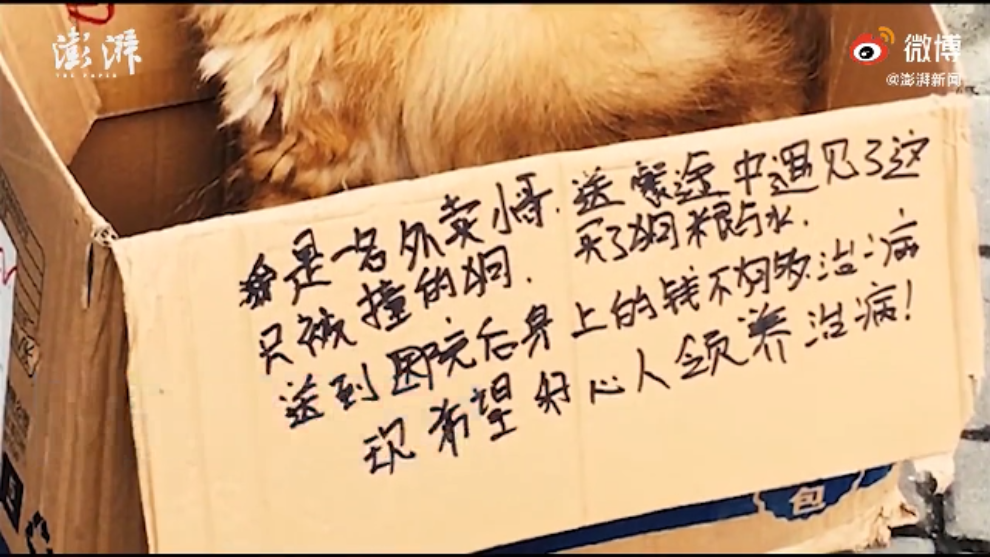 澎湃
THE PAPER
微博
@澎湃新闻
我是一名外卖小哥.送餐途中遇见了这
只被撞的狗. 买了狗粮与水.
送到医院后身上的钱不够治病
现希望好心人领养治病!
包